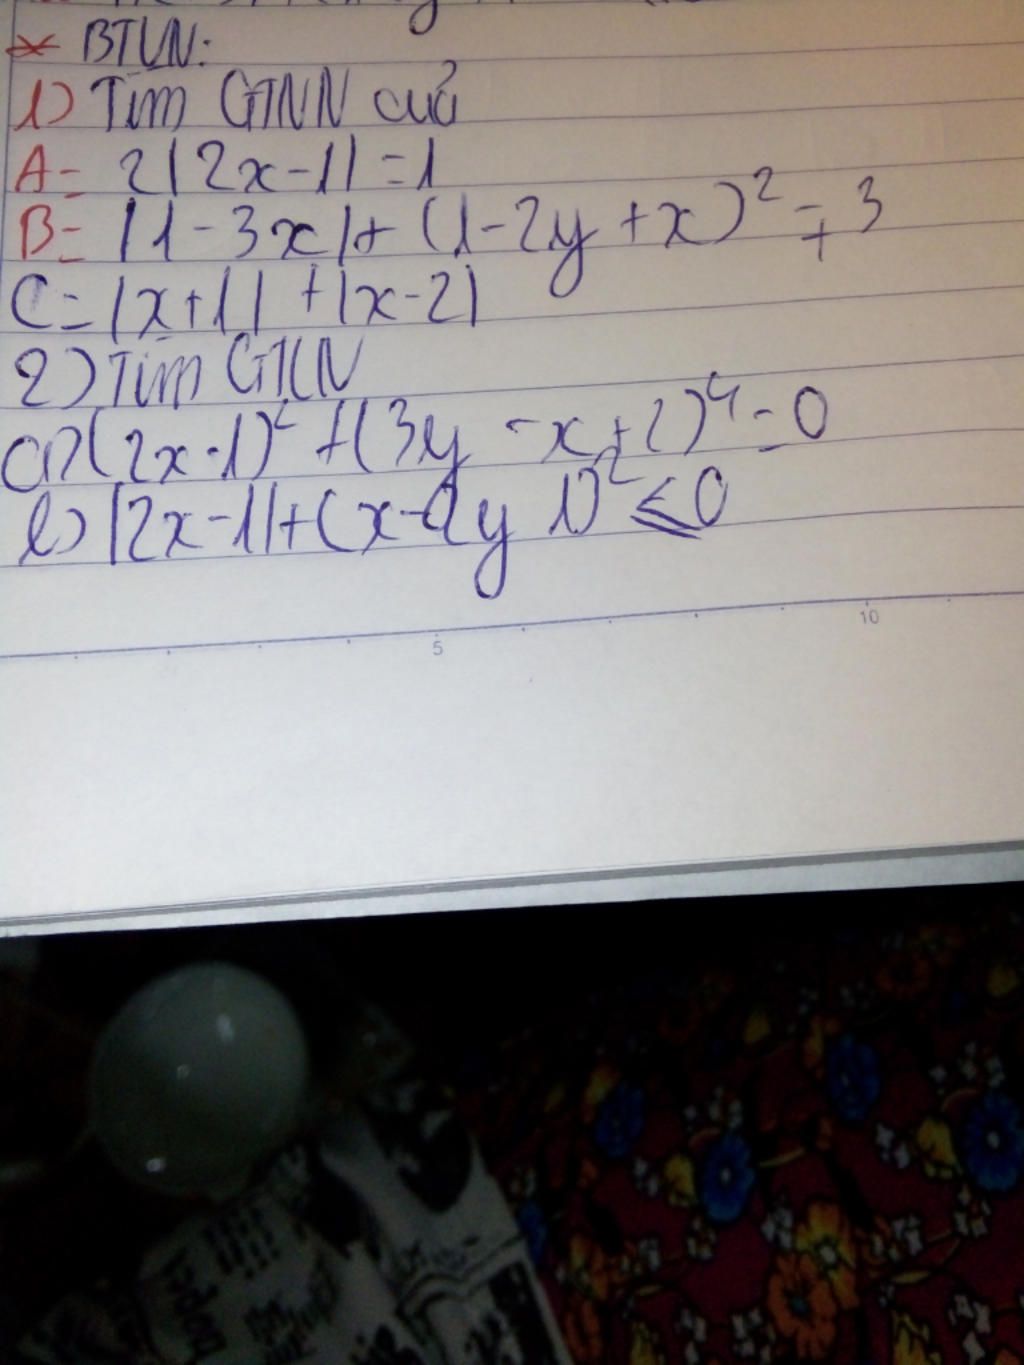 * BTVN:
1) Tìm GTNN củả
A = 2|2x-1| = 1
B = |1-3x| + (1-2y+x)² = + 3
C = |x+1| + |x-2|
2) Tìm GTLN
a) (2x-1)² + (3y-x+2)⁴ = 0
b) |2x-1| + (x-2y 1)² ≤ 0
5
10